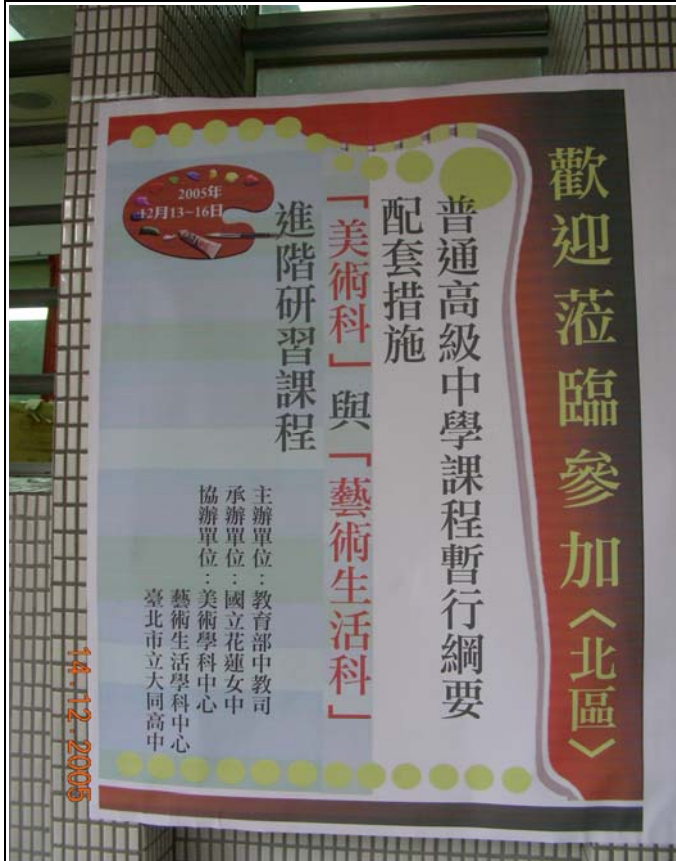 歡迎蒞臨參加〈北區〉
普通高級中學課程暫行綱要
配套措施
「美術科」與「藝術生活科」
進階研習課程
2005年
12月13~16日
主辦單位：教育部中教司
承辦單位：國立花蓮女中
協辦單位：美術學科中心
藝術生活學科中心
臺北市立大同高中
14.12.2005